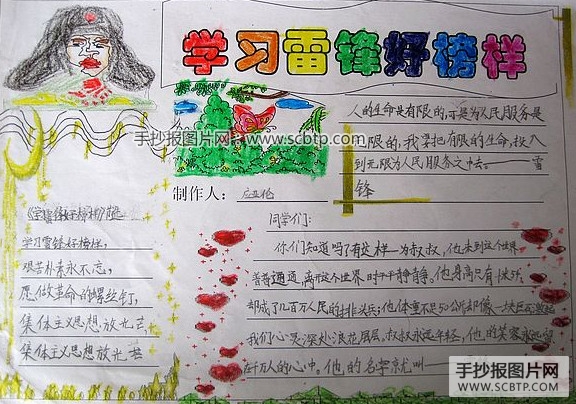 学习雷锋好榜样
人的生命是有限的,可是为人民服务是
无限的,我要把有限的生命,投入
到无限为人民服务之中去。——雷
锋
手抄报图片网
www.scbtp.com
制作人:
《学习雷锋好榜样》
学习雷锋好榜样,
艰苦朴素永不忘,
愿做革命的螺丝钉,
集体主义思想放光芒,
集体主义思想放光芒
同学们:
你们知道吗?有这样一为叔叔,他来到这个世界
普普通通,离开这个世界时平平静静。他身高只有
却成了几百万人民的排头兵;他体重不足50公斤却像一块巨石激起
我们心灵深处浪花层层。叔叔永远年轻,他的笑容永远留
在千万人的心中。他的名字就叫——
手抄报图片网
WWW.SCBTP.COM